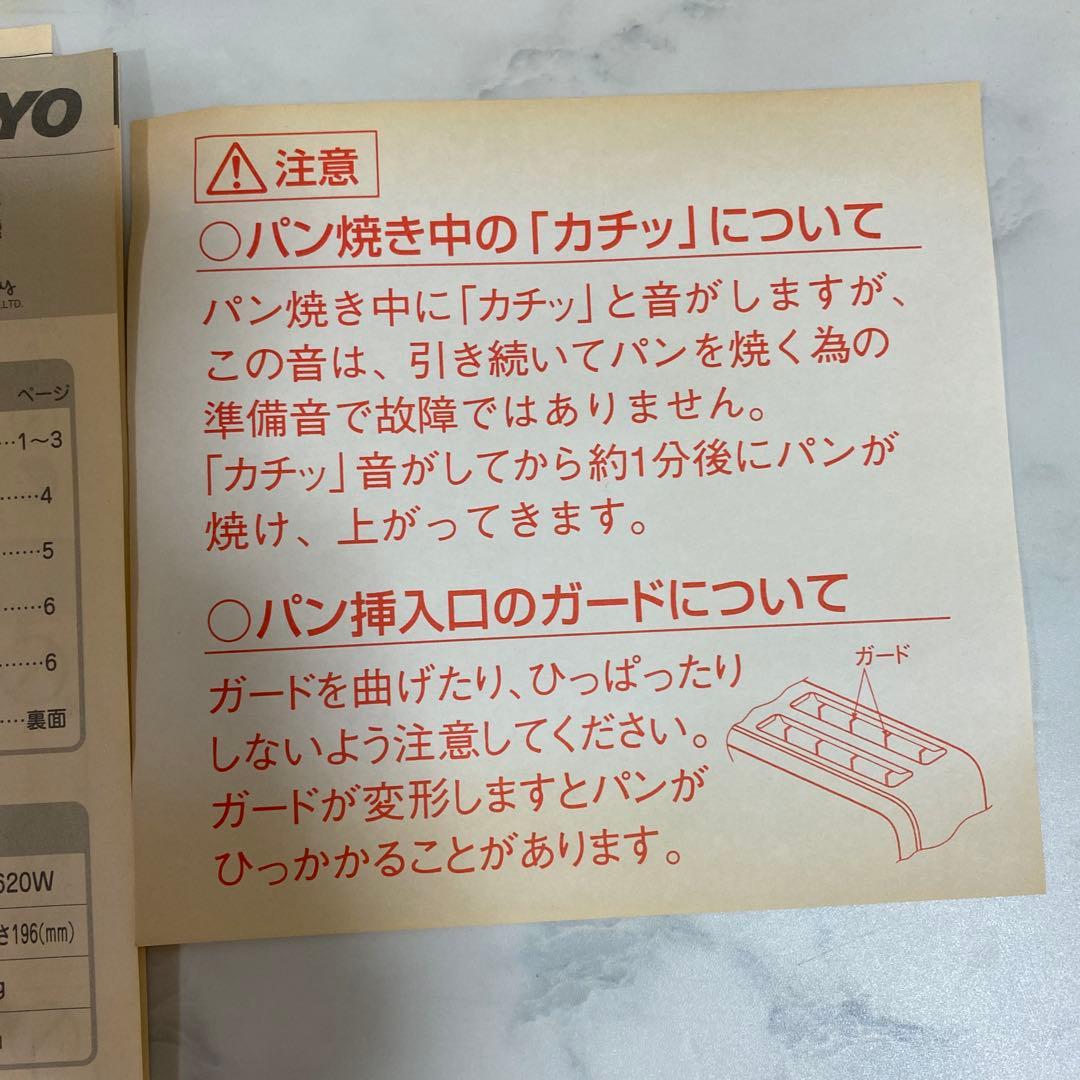 YO
LTD.
ページ
…1〜3
……4
……5
……6
……6
…裏面
620W
さ196(mm)
g
注意
○パン焼き中の「カチッ」について
パン焼き中に「カチッ」と音がしますが、
この音は、引き続いてパンを焼く為の
準備音で故障ではありません。
「カチッ」音がしてから約1分後にパンが
焼け、上がってきます。
○パン挿入口のガードについて
ガードを曲げたり、ひっぱったり
しないよう注意してください。
ガードが変形しますとパンが
ひっかかることがあります。
ガード